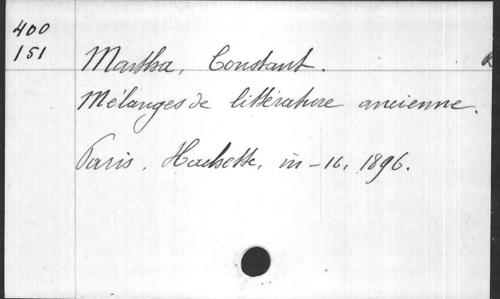 400
151
Martha, Constant.
Mélanges de littérature ancienne.
Paris, Hachette, in-16, 1896.